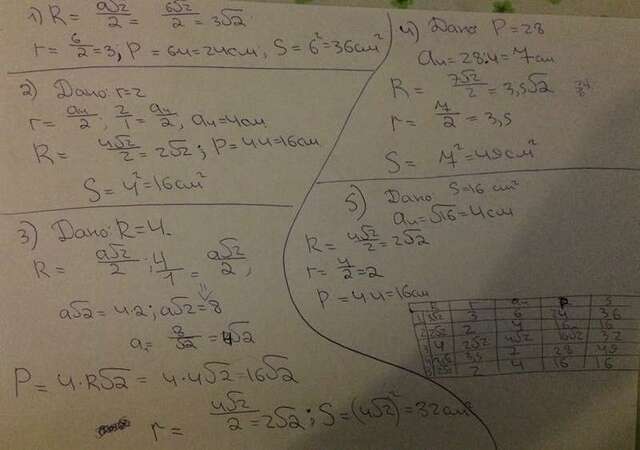 1) R = a√2/2 = 6√2/2 = 3√2
r = 6/2 = 3; P = 6·4 = 24см, S = 6² = 36см²
2) Дано: r=2
r = a₄/2, 2/1 = a₄/2, a₄ = 4см
R = 4√2/2 = 2√2; P = 4·4 = 16см
S = 4² = 16см²
3) Дано: R = 4.
R = a√2/2; 4/1 = a√2/2,
a√2 = 4·2; a√2 = 8
a = 8/√2 = 4√2
P = 4·R√2 = 4·4√2 = 16√2
r = 4√2/2 = 2√2; S = (4√2)² = 32см²
4) Дано P = 28
a₄ = 28:4 = 7см
R = 7√2/2 = 3,5√2
r = 7/2 = 3,5
S = 7² = 49см²
5) Дано: S = 16 см²
a₄ = √16 = 4см
R = 4√2/2 = 2√2
r = 4/2 = 2
P = 4·4 = 16см
R r a₄ P S
1 3√2 3 6 24 36
2 2√2 2 4 16 16
3 4 2√2 4√2 16√2 32
3,5 7 28 49
2 4 16 16